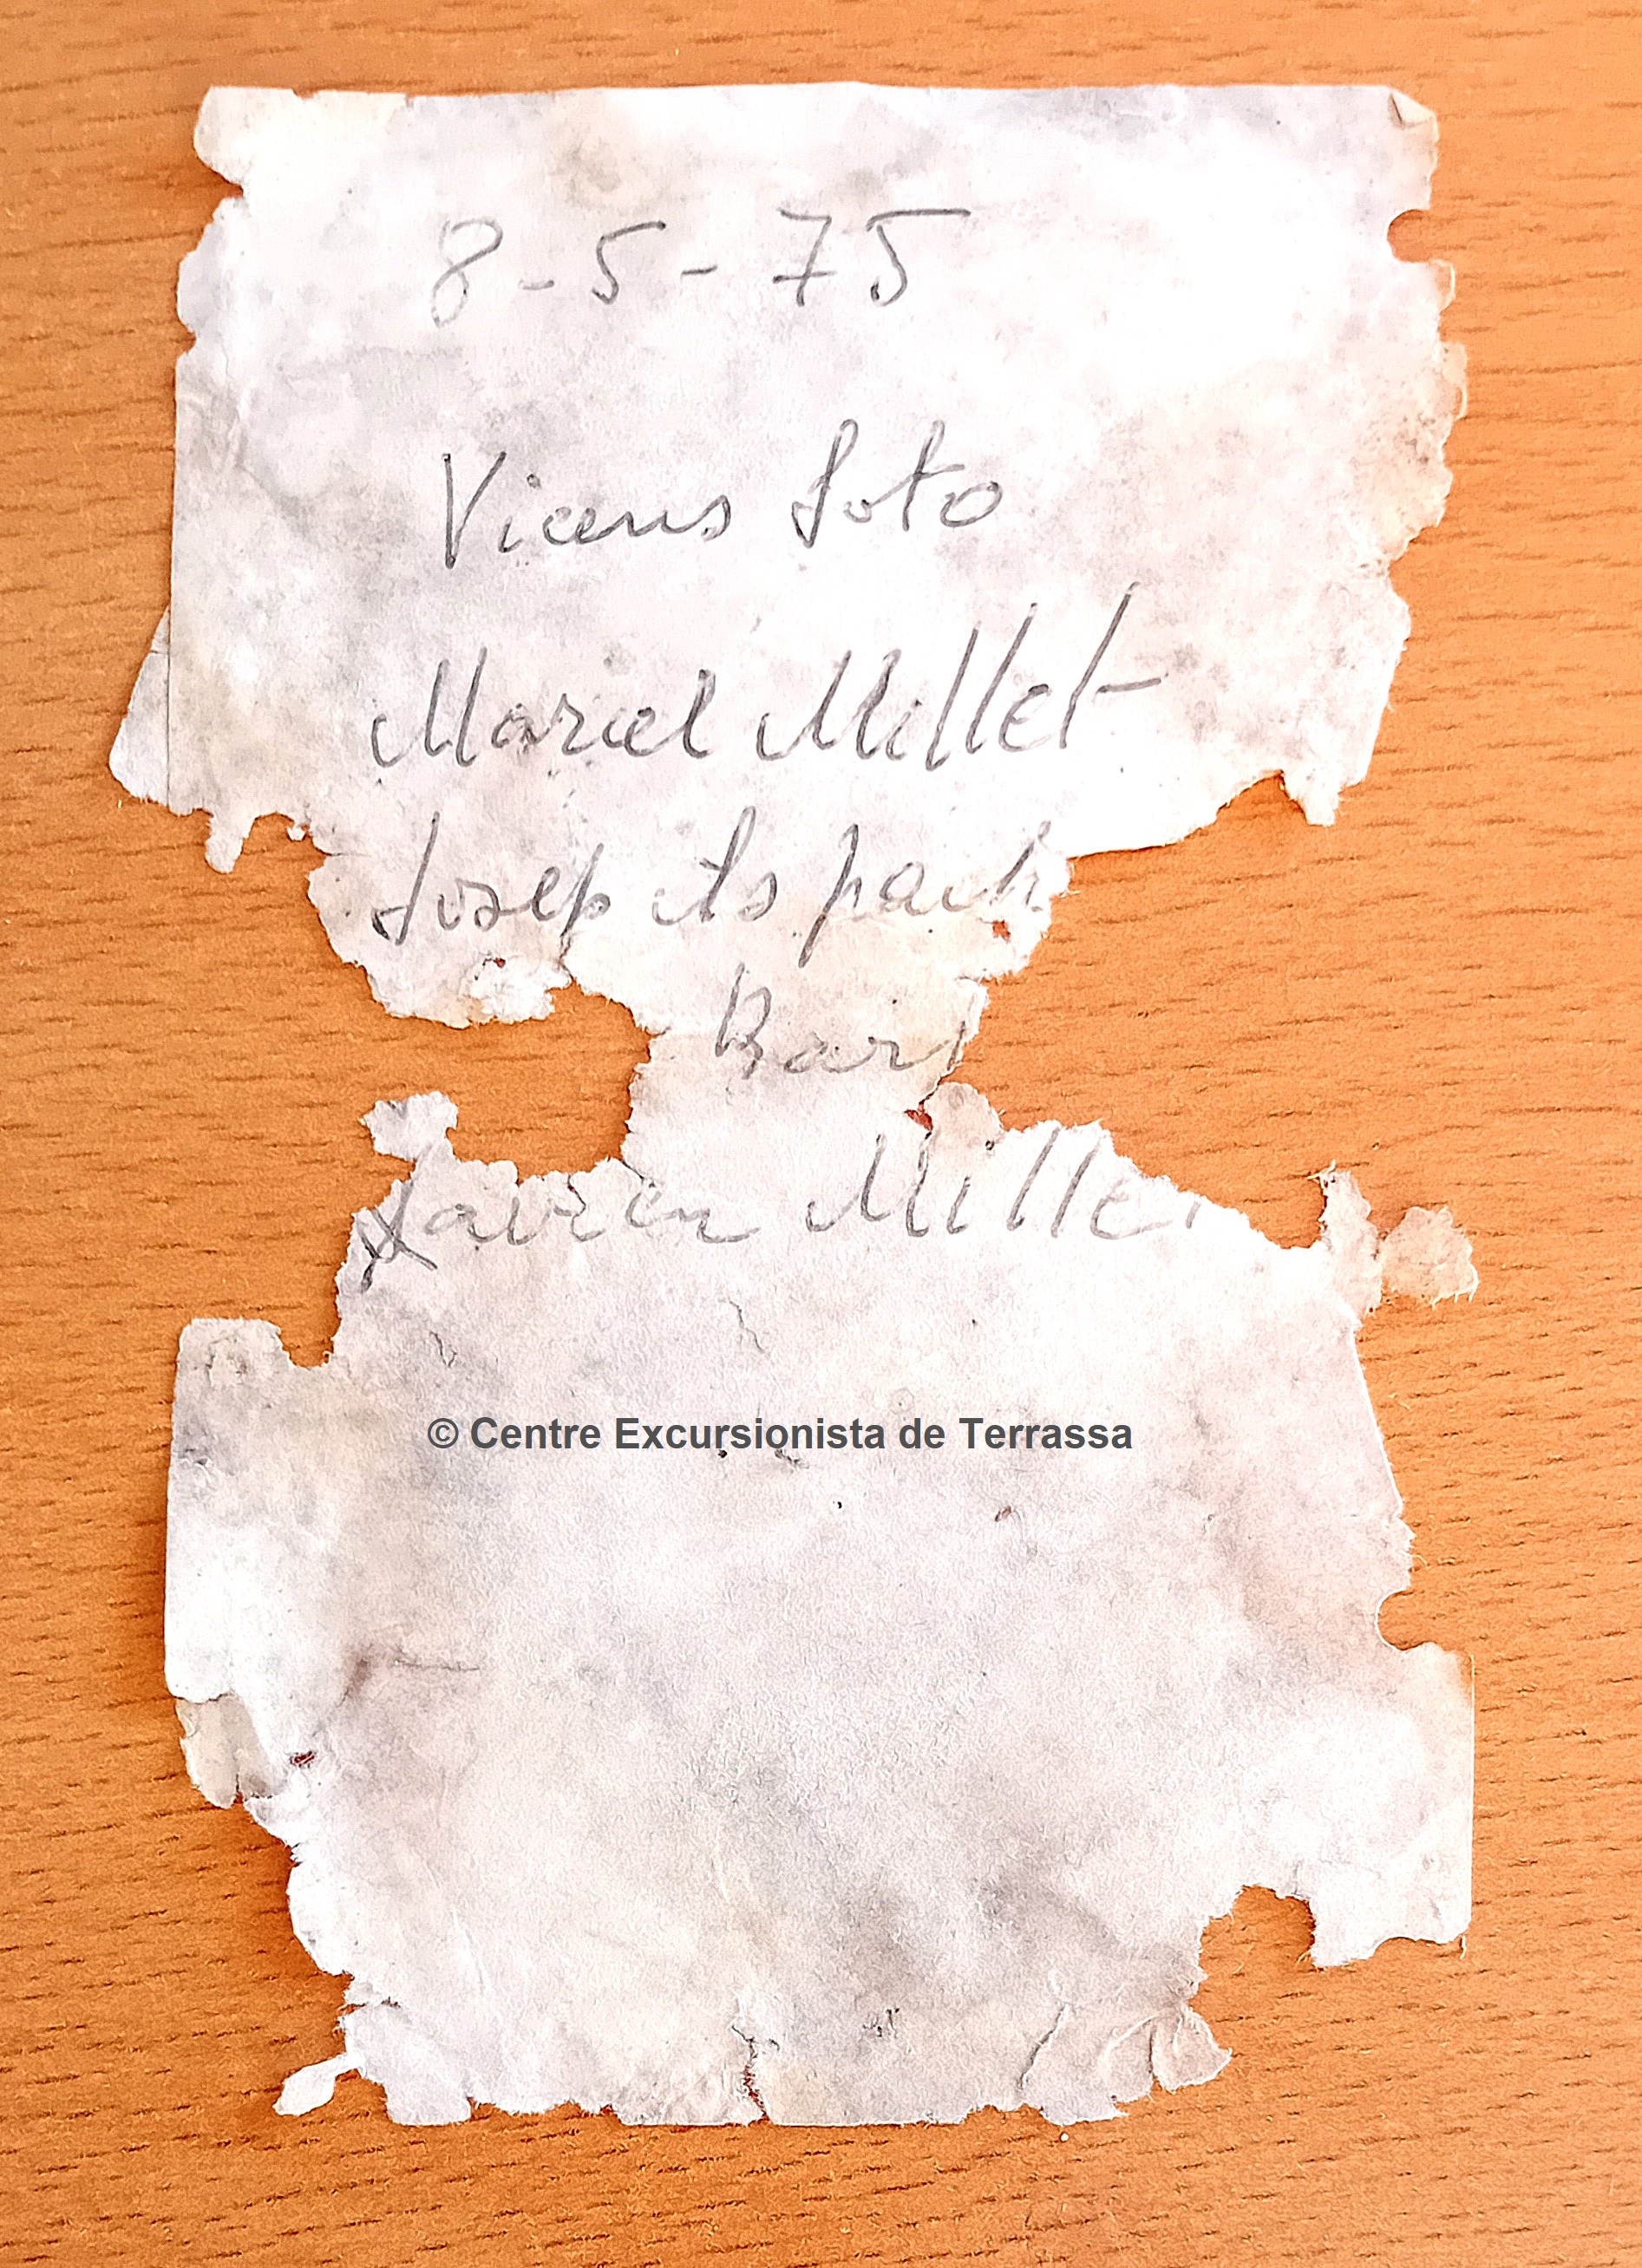 8-5-75
Vicens Soto
Marcel Millet
Josep
Bar
Millet
© Centre Excursionista de Terrassa